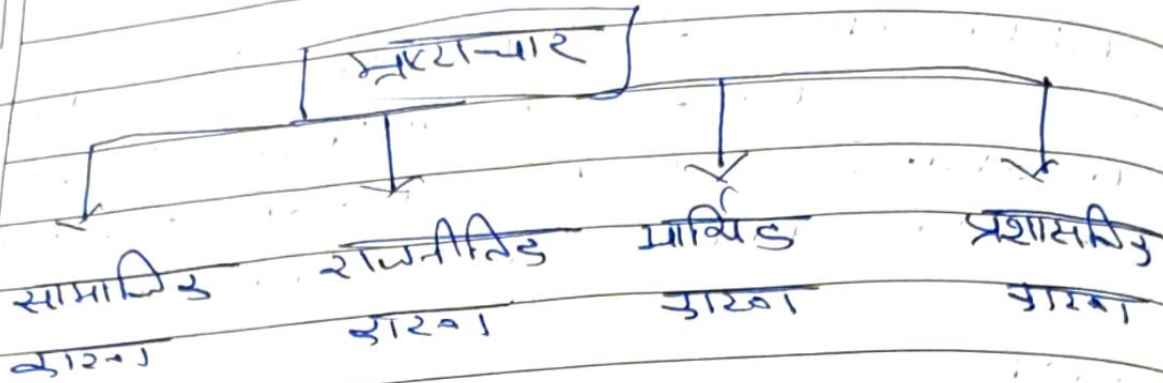 भ्रष्टाचार
सामाजिक कारण
राजनीतिक कारण
आर्थिक कारण
प्रशासनिक कारण